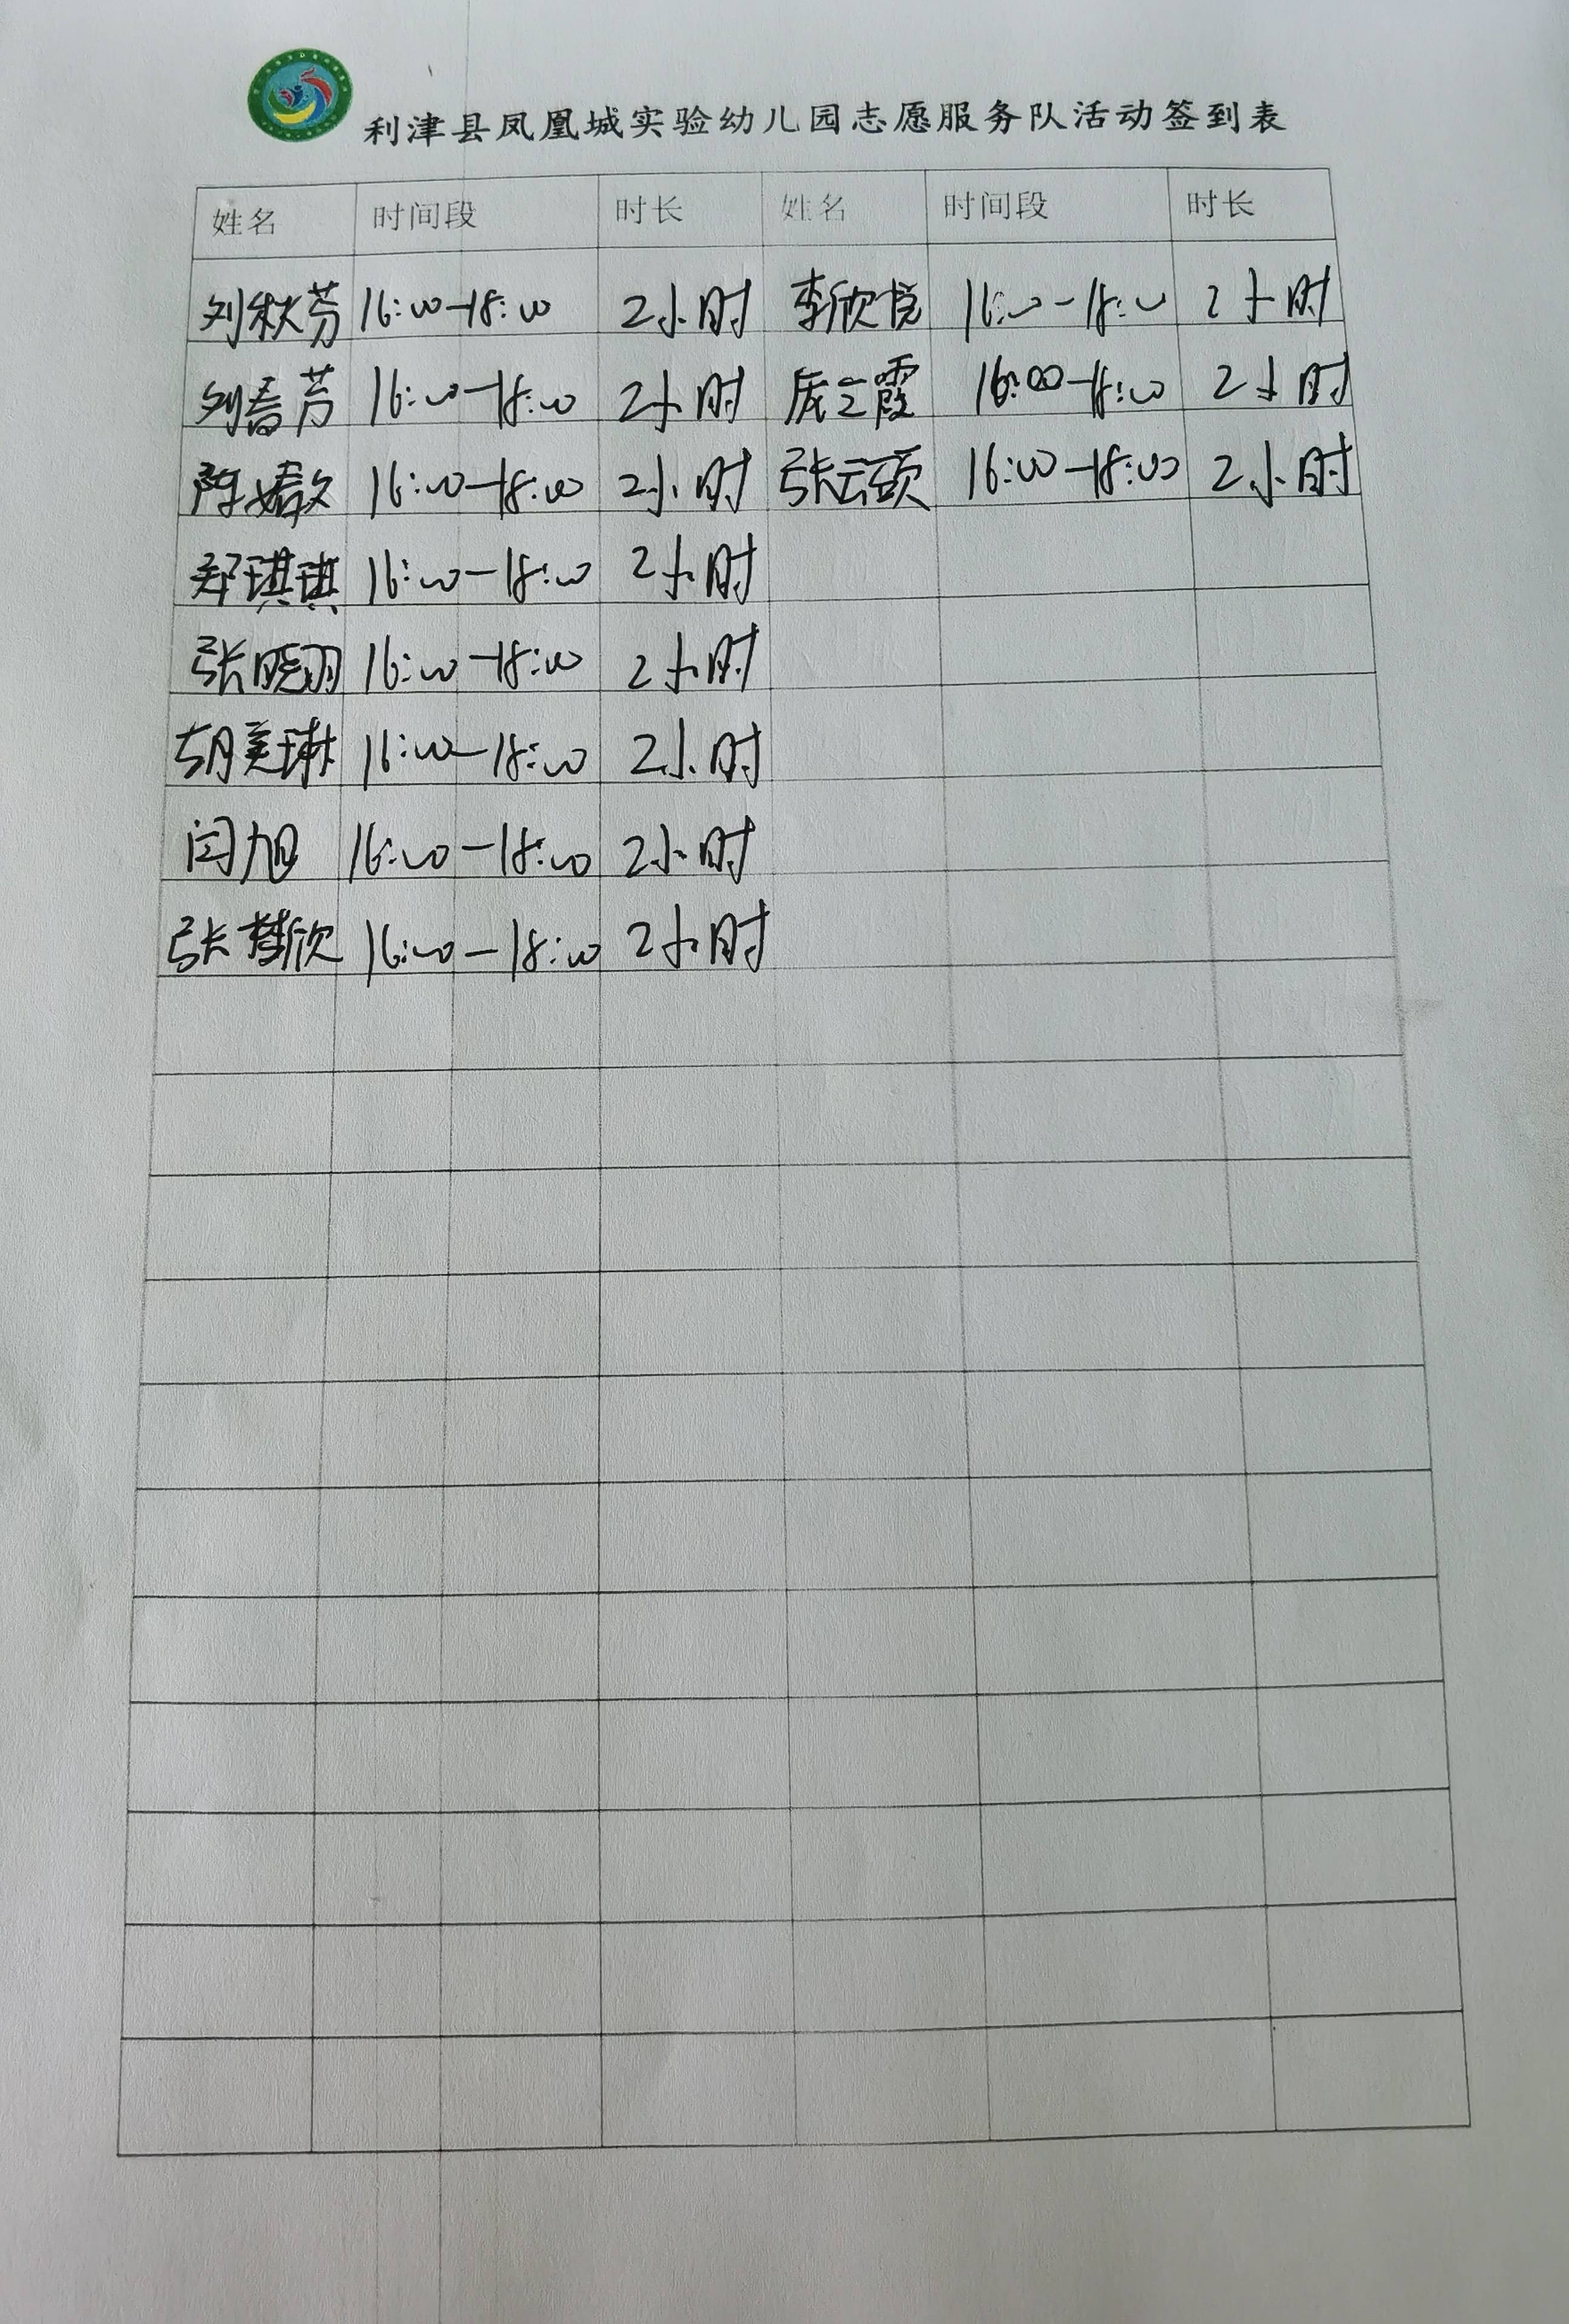 利津县凤凰城实验幼儿园志愿服务队活动签到表
姓名 时间段 时长 姓名 时间段 时长
刘秋芬 16:00-18:00 2小时 李欣悦 16:00-18:00 2小时
刘春芳 16:00-18:00 2小时 庞云霞 16:00-18:00 2小时
陈婧文 16:00-18:00 2小时 张云硕 16:00-18:00 2小时
郑琪琪 16:00-18:00 2小时
张晓羽 16:00-18:00 2小时
胡美琳 16:00-18:00 2小时
闫旭 16:00-18:00 2小时
张梦欣 16:00-18:00 2小时